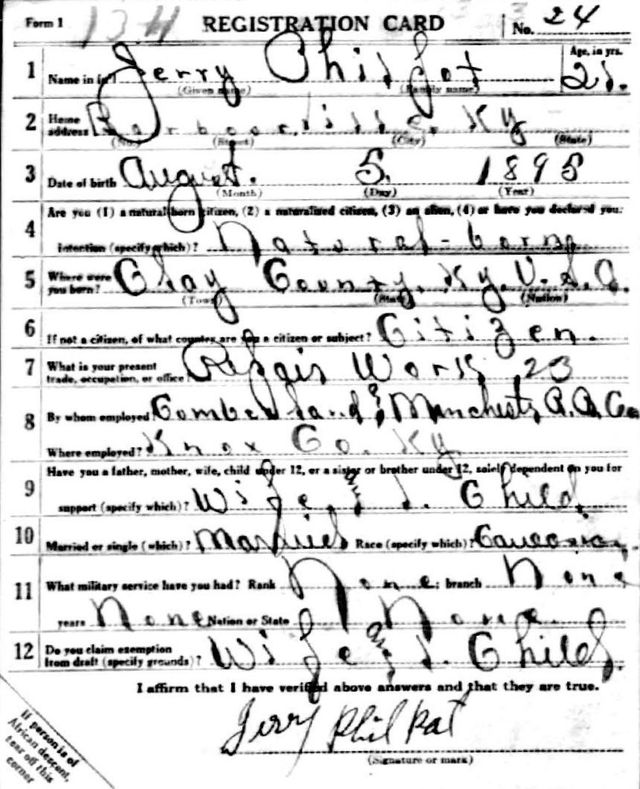 Form 1 1314 REGISTRATION CARD No. 24
1 Name in full Jerry Philpot Age, in yrs. 21.
(Given name) (Family name)
2 Home address Barboorville, Ky
(No.) (Street) (City) (State)
3 Date of birth August. 5. 1895
(Month) (Day) (Year)
4 Are you (1) a natural born citizen, (2) a naturalized citizen, (3) an alien, (4) or have you declared your
intention (specify which)? Natural-born
5 Where were you born? Clay County, Ky. U.S.A.
(Town) (State) (Nation)
6 If not a citizen, of what country are you a citizen or subject? Citizen.
7 What is your present trade, occupation, or office? Repair Work 23
8 By whom employed Comberland & Manchester R.R. Co
Where employed? Knox Co. Ky
9 Have you a father, mother, wife, child under 12, or a sister or brother under 12, solely dependent on you for
support (specify which)? Wife & 1. Child
10 Married or single (which)? Married Race (specify which)? Caucasian
11 What military service have you had? Rank None; branch None
years None Nation or State None.
12 Do you claim exemption from draft (specify grounds)? Wife & 1. Child.
I affirm that I have verified above answers and that they are true.
Jerry Philpat
(Signature or mark)
If person is of
African descent,
tear off this
corner